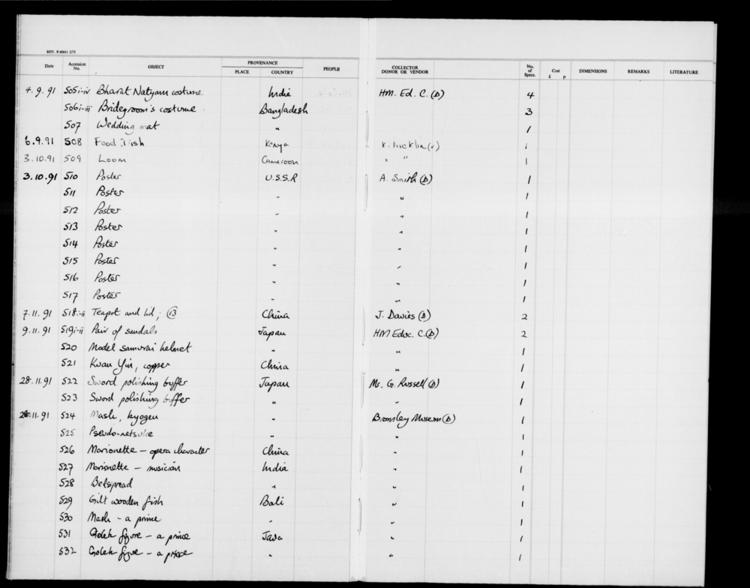 Date Accession No. OBJECT PROVENANCE PLACE COUNTRY PEOPLE COLLECTOR DONOR OR VENDOR No. of Specs. Cost £ p DIMENSIONS REMARKS LITERATURE
4.9.91 505i-iv Bharat Natyam costume India HM. Ed. C. (D) 4
506i-iii Bridegroom's costume Bangladesh 3
507 Wedding mat " 1
6.9.91 508 Food dish Kenya K. (v) 1
3.10.91 509 Loom Cameroon " " 1
3.10.91 510 Poster U.S.S.R A. Smith (D) 1
511 Poster " " 1
512 Poster " " 1
513 Poster " " 1
514 Poster " " 1
515 Poster " " 1
516 Poster " " 1
517 Poster " " 1
7.11.91 518i-ii Teapot and lid; China J. Davies (D) 2
9.11.91 519i-ii Pair of sandals Japan HM Educ. C. (D) 2
520 Model samurai helmet " " 1
521 Kwan Yin, copper China " 1
28.11.91 522 Sword polishing buffer Japan Mr. G. Russell (D) 1
523 Sword polishing buffer " " 1
28.11.91 524 Mask, kyogen " Bromley Museum (D) 1
525 Pseudo-netsuke " " 1
526 Marionette - opera character China " 1
527 Marionette - musician India " 1
528 Betspread " " 1
529 Gilt wooden fish Bali " 1
530 Mask - a prince " " 1
531 Golek figure - a prince Java " 1
532 Golek figure - a prince " " 1